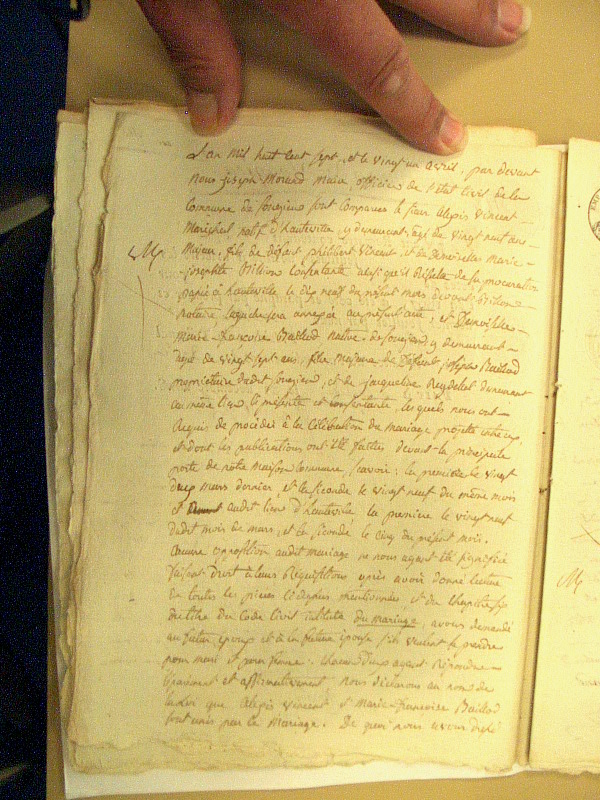 L'an mil huit cent sept, et le vingt un avril, par devant
Nous joseph Morand Maire, officier de l'état Civil de la
Commune de Sont Comparus le sieur alexis Vincent
Maréchal natif d'hauteville, y demeurant, agé de vingt neuf ans
Majeur, fils de défunt philibert Vincent, et de demoiselle Marie
josephte Billion Consentante ainsi qu'il Résulte de sa procuration
passée à hauteville le dix neuf du présent mois devant Billion
notaire laquelle sera annexée au présent acte, et Demoiselle
Marie françoise Baillod native de y demeurant
agée de vingt sept ans, fille Majeure de Défunt joseph Baillod
propriétaire dudit et de jacqueline Reydellet demeurant
au même lieu, ici présente et consentante, les quels nous ont
Requis de procéder à la Célébration du mariage projetté entre eux
et dont les publications ont été faittes devant la principale
porte de notre Maison Commune, scavoir: la première le vingt
deux mars dernier et la seconde le vingt neuf du même mois
et audit lieu d'hauteville la première le vingt neuf
dudit mois de mars, et la seconde le Cinq du présent mois.
aucune opposition audit mariage ne nous ayant été signifiée
faisant Droit à leurs Réquisitions après avoir donné lecture
de toutes les pièces ci dessus mentionnées et du chapitre six
du titre du Code Civil intitulé du mariage, avons demandé
au futur époux et à la future épouse s'ils veulent se prendre
pour mari et pour femme. chacun d'eux ayant Répondu
séparément et affirmativement, nous déclarons au nom de
la Loi que alexis Vincent et Marie françoise Baillod
sont unis par le Mariage. De quoi nous avons dressé